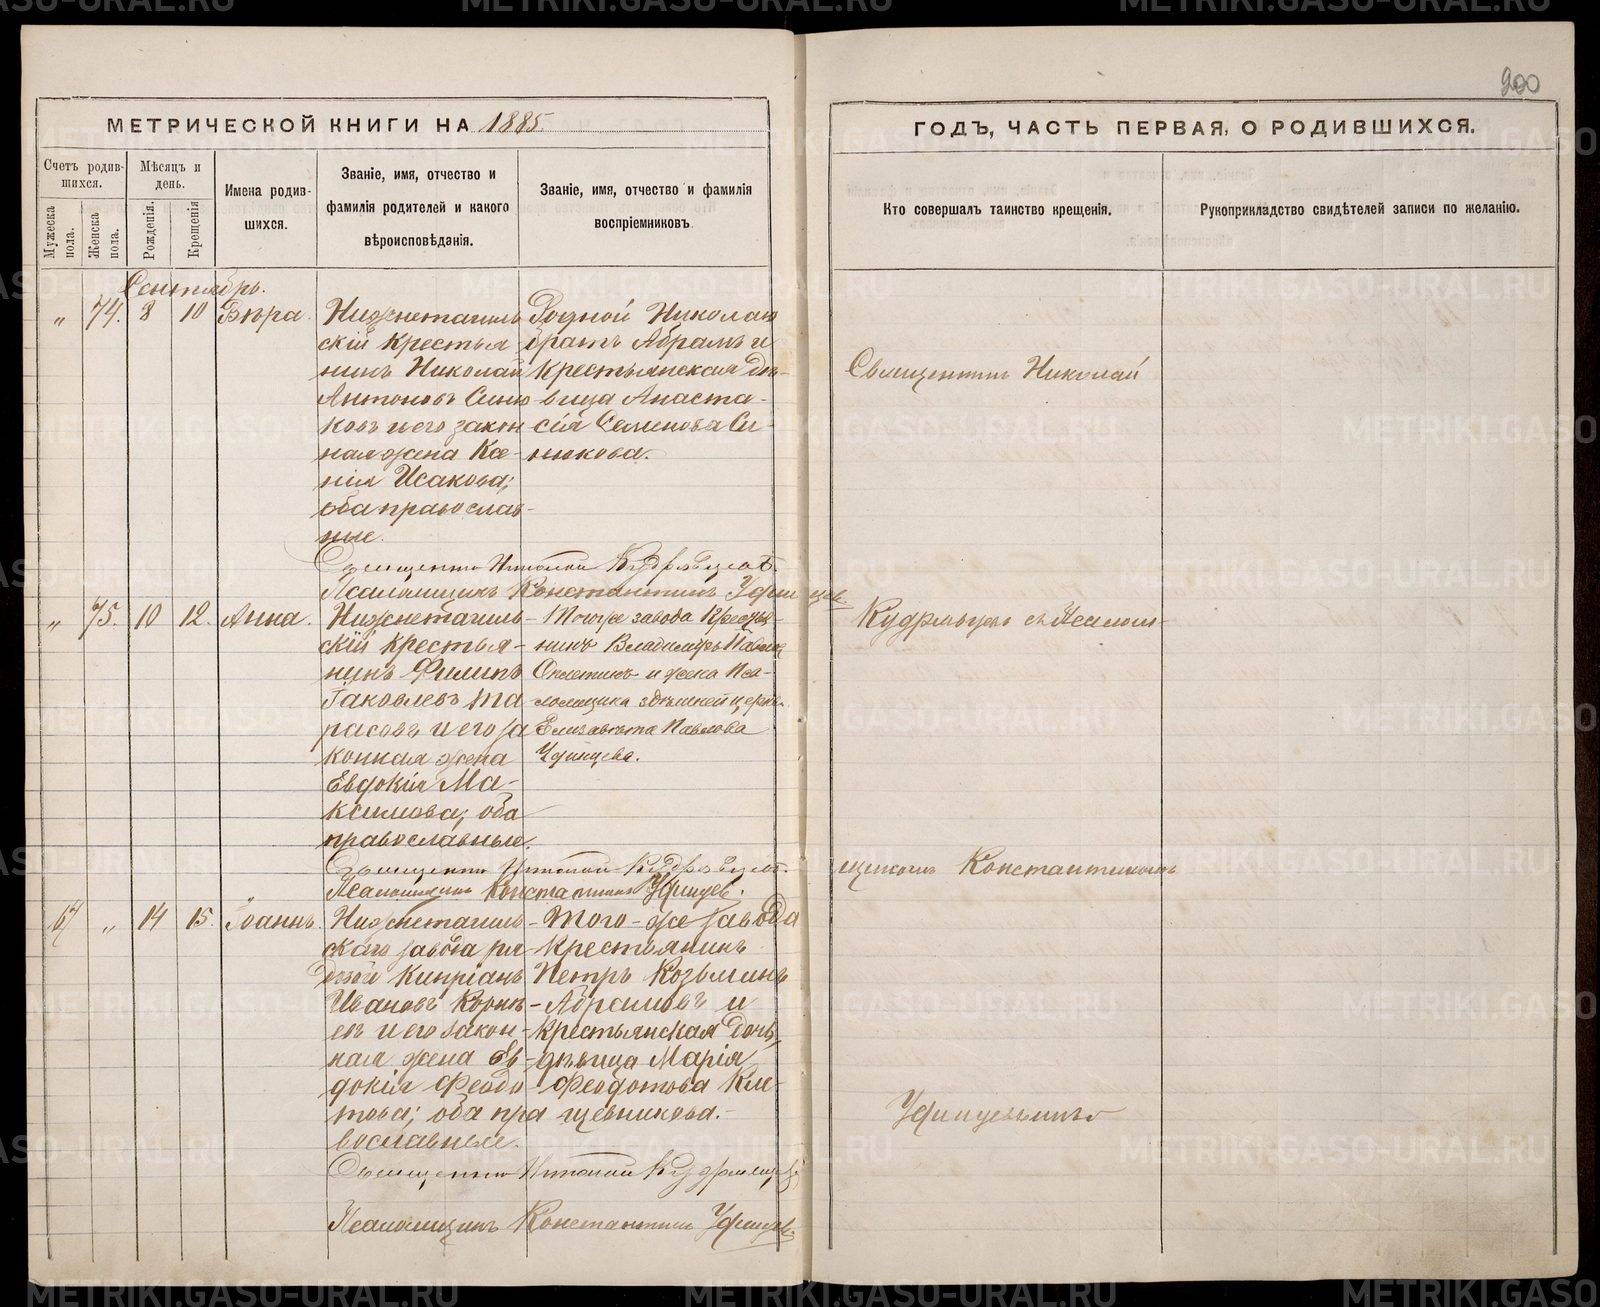 200
МЕТРИЧЕСКОЙ КНИГИ НА 1885.
ГОДЪ, ЧАСТЬ ПЕРВАЯ, О РОДИВШИХСЯ.
Счетъ родив-
шихся.
Мужеска пола.
Женска пола.
Мѣсяцъ и
день.
Рожденія.
Крещенія
Имена родив-
шихся.
Званіе, имя, отчество и
фамилія родителей и какого
вѣроисповѣданія.
Званіе, имя, отчество и фамилія
воспріемниковъ.
Кто совершалъ таинство крещенія.
Рукоприкладство свидѣтелей записи по желанію.
Сентябрь.
" 74. 8 10 Вѣра.
Нижнетагиль
скій крестья
нинъ Николай
Антоновъ Синю
ковъ и его закон
ная жена Ксе-
нія Исакова;
оба православ-
ные.
Родной Николаю
братъ Абрамъ и
крестьянская дѣ-
вица Анаста-
сія Семенова Си-
нюкова.
Священникъ Николай
Священникъ Николай Кудрявцевъ.
Псаломщикъ Константинъ Удинцев.
" 75. 10 12. Анна.
Нижнетагиль-
скій крестья-
нинъ Филипъ
Іаковлевъ Та
расовъ и его за
конная жена
Евдокія Ма-
ксимова; оба
православные.
Того же завода крестья-
нинъ Владимиръ
и жена Пса-
ломщика здѣшней церкв.
Елизавета Павлова
Удинцева.
Кудрявцевъ съ Псалом-
Священникъ Николай Кудрявцевъ.
Псаломщикъ Константинъ Удинцев.
67 " 14 15. Іоаннъ.
Нижнетагиль-
скаго завода ря
довой Кипріанъ
Ивановъ Корни-
евъ и его закон-
ная жена Ев-
докія Феодо-
това; оба пра
вославные.
Того-же завода
крестьянинъ
Петръ Козьминъ
Абрамовъ и
крестьянская дочь,
дѣвица Марія
Феодотова Кле-
щевникова.-
щикомъ Константиномъ
Удинцевымъ
Священникъ Николай Кудрявцевъ
Псаломщикъ Константинъ Удинцевъ
METRIKI.GASO-URAL.RU